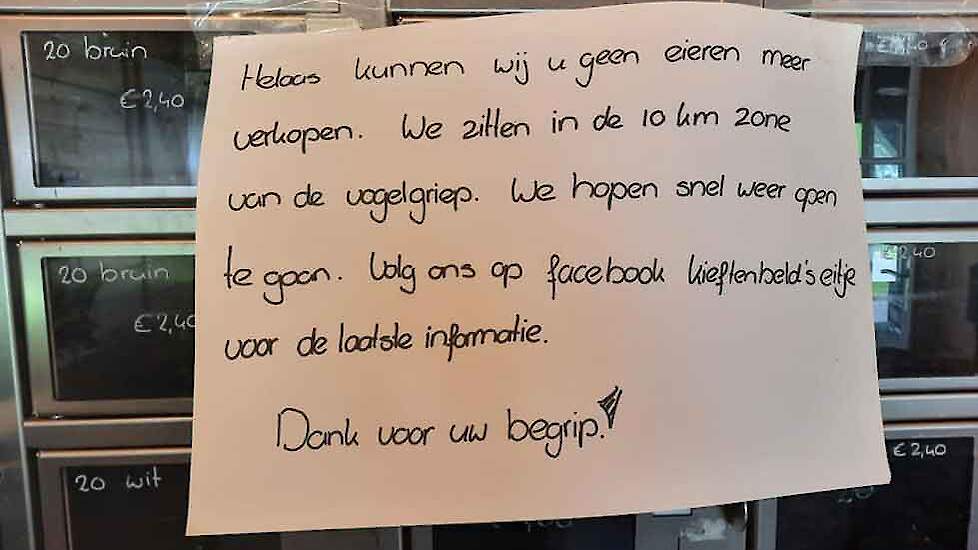 20 bruin
€2,40
Helaas kunnen wij u geen eieren meer
verkopen. We zitten in de 10 km zone
van de vogelgriep. We hopen snel weer open
te gaan. Volg ons op facebook kieftenbeld's eitje
voor de laatste informatie.
Dank voor uw begrip!
20 bruin
€2,40
2,40
20 wit
€2,40
20